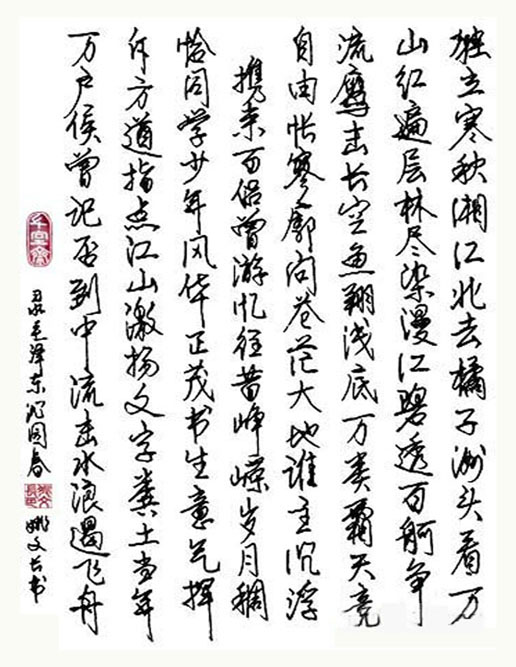 独立寒秋湘江北去橘子洲头看万
山红遍层林尽染漫江碧透百舸争
流鹰击长空鱼翔浅底万类霜天竞
自由怅寥廓问苍茫大地谁主沉浮
携来百侣曾游忆往昔峥嵘岁月稠
恰同学少年风华正茂书生意气挥
斥方遒指点江山激扬文字粪土当年
万户侯曾记否到中流击水浪遏飞舟
录毛泽东沁园春
姚文长书